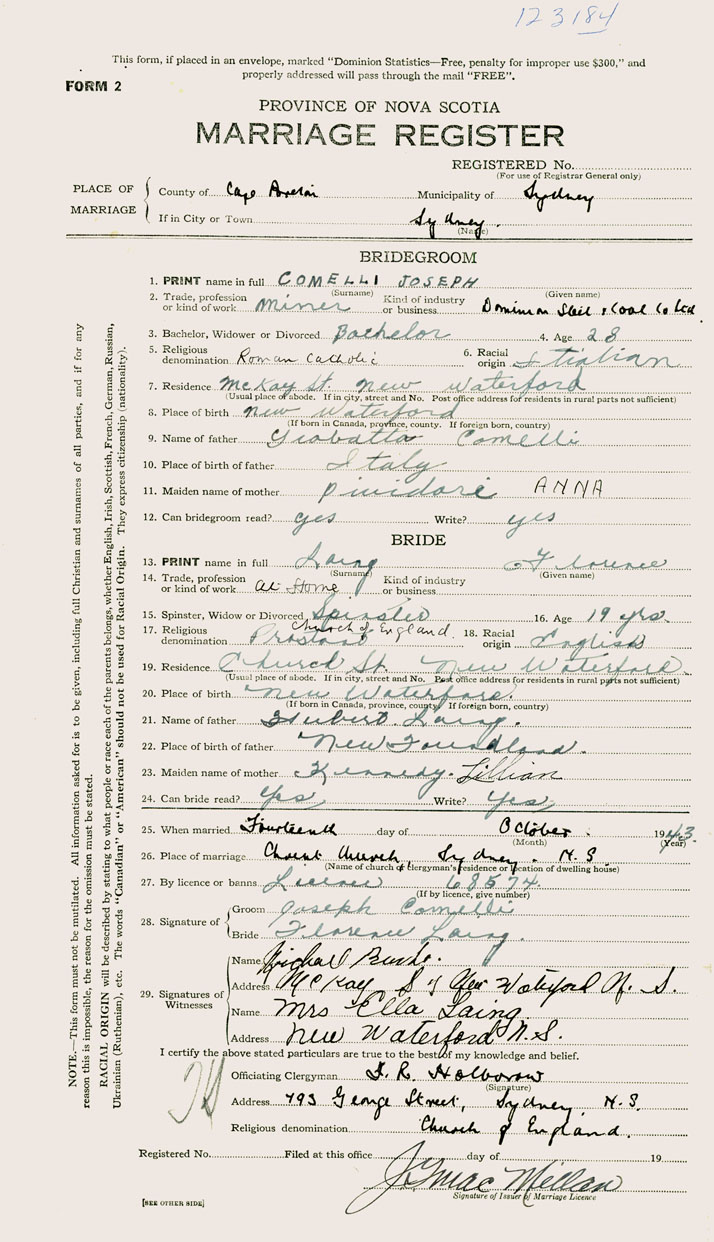 123184
This form, if placed in an envelope, marked "Dominion Statistics—Free, penalty for improper use $300," and
properly addressed will pass through the mail "FREE".
FORM 2
PROVINCE OF NOVA SCOTIA
MARRIAGE REGISTER
REGISTERED No.
(For use of Registrar General only)
PLACE OF MARRIAGE
County of Cape Breton Municipality of Sydney
If in City or Town Sydney.
(Name)
BRIDEGROOM
1. PRINT name in full COMELLI JOSEPH
(Surname) (Given name)
2. Trade, profession or kind of work Miner Kind of industry or business Dominion Steel & Coal Co Ltd.
3. Bachelor, Widower or Divorced Bachelor 4. Age 28
5. Religious denomination Roman Catholic 6. Racial origin Itialian
7. Residence McKay St. New Waterford
(Usual place of abode. If in city, street and No. Post office address for residents in rural parts not sufficient)
8. Place of birth New Waterford
(If born in Canada, province, county. If foreign born, country)
9. Name of father Giobatta Comelli
10. Place of birth of father Italy
11. Maiden name of mother Pividori ANNA
12. Can bridegroom read? yes Write? yes
BRIDE
13. PRINT name in full Laing Florence
(Surname) (Given name)
14. Trade, profession or kind of work At Home Kind of industry or business
15. Spinster, Widow or Divorced Spinster 16. Age 19 yrs.
17. Religious denomination Church of England. 18. Racial origin English
19. Residence Church St. New Waterford
(Usual place of abode. If in city, street and No. Post office address for residents in rural parts not sufficient)
20. Place of birth New Waterford.
(If born in Canada, province, county. If foreign born, country)
21. Name of father Hubert Laing.
22. Place of birth of father New Foundland.
23. Maiden name of mother Kennedy. Lillian
24. Can bride read? Yes Write? Yes
25. When married Fourteenth day of October. 1943.
(Month) (Year)
26. Place of marriage Christ Church, Sydney. N.S.
(Name of church or clergyman's residence or location of dwelling house)
27. By licence or banns License 68574
(If by licence, give number)
28. Signature of Groom Joseph Comelli
Bride Florence Laing.
29. Signatures of Witnesses
Name Michael Burke.
Address McKay St New Waterford N. S.
Name Mrs Ella Laing
Address New Waterford N.S.
I certify the above stated particulars are true to the best of my knowledge and belief.
Officiating Clergyman Holborow
(Signature)
Address 793 George Street, Sydney, N.S.
Religious denomination Church of England.
Registered No. Filed at this office day of 19
J G MacMillan
Signature of Issuer of Marriage Licence
[SEE OTHER SIDE]
NOTE.—This form must not be mutilated. All information asked for is to be given, including full Christian and surnames of all parties, and if for any
reason this is impossible, the reason for the omission must be stated.
RACIAL ORIGIN will be described by stating to what people or race each of the parents belongs, whether English, Irish, Scottish, French, German, Russian,
Ukrainian (Ruthenian), etc. The words "Canadian" or "American" should not be used for Racial Origin. They express citizenship (nationality).